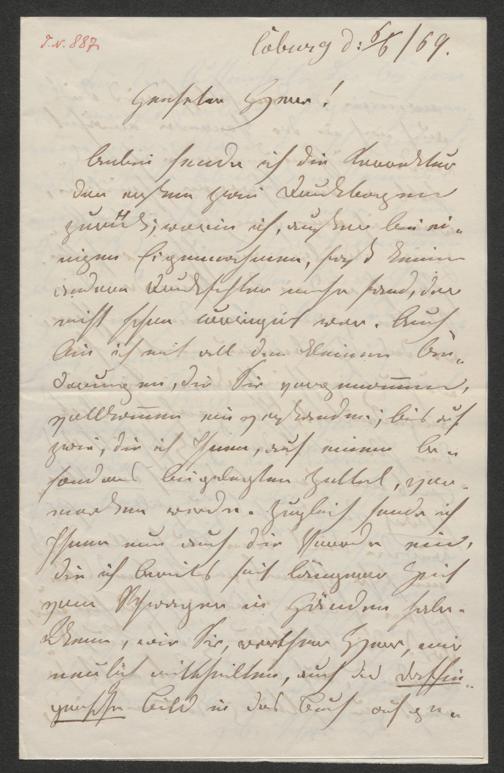 J.N. 887
Coburg d: 6/6/69.
Geehrter Herr!
Anbei sende ich die Korrektur
der ersten zwei Druckbogen
zurück, worin ich, außer bei ei-
nigen Eigennamen, fast keine
andern Druckfehler mehr fand, der
nicht schon corrigirt war. Auch
bin ich mit all den kleinen Än-
derungen, die Sie vorgenommen,
vollkommen einverstanden; bis auf
zwei, die ich Ihnen, auf einem be-
sonders beigelegten Zettel, ver-
merken werde. Zugleich sende ich
Ihnen nun auch die Vorrede ein,
die ich bereits seit längerer Zeit
vom Schwager in Händen habe.
Wenn, wie Sie, werther Herr, mir
neulich mittheilten, auch das
Bild in das Buch aufge-